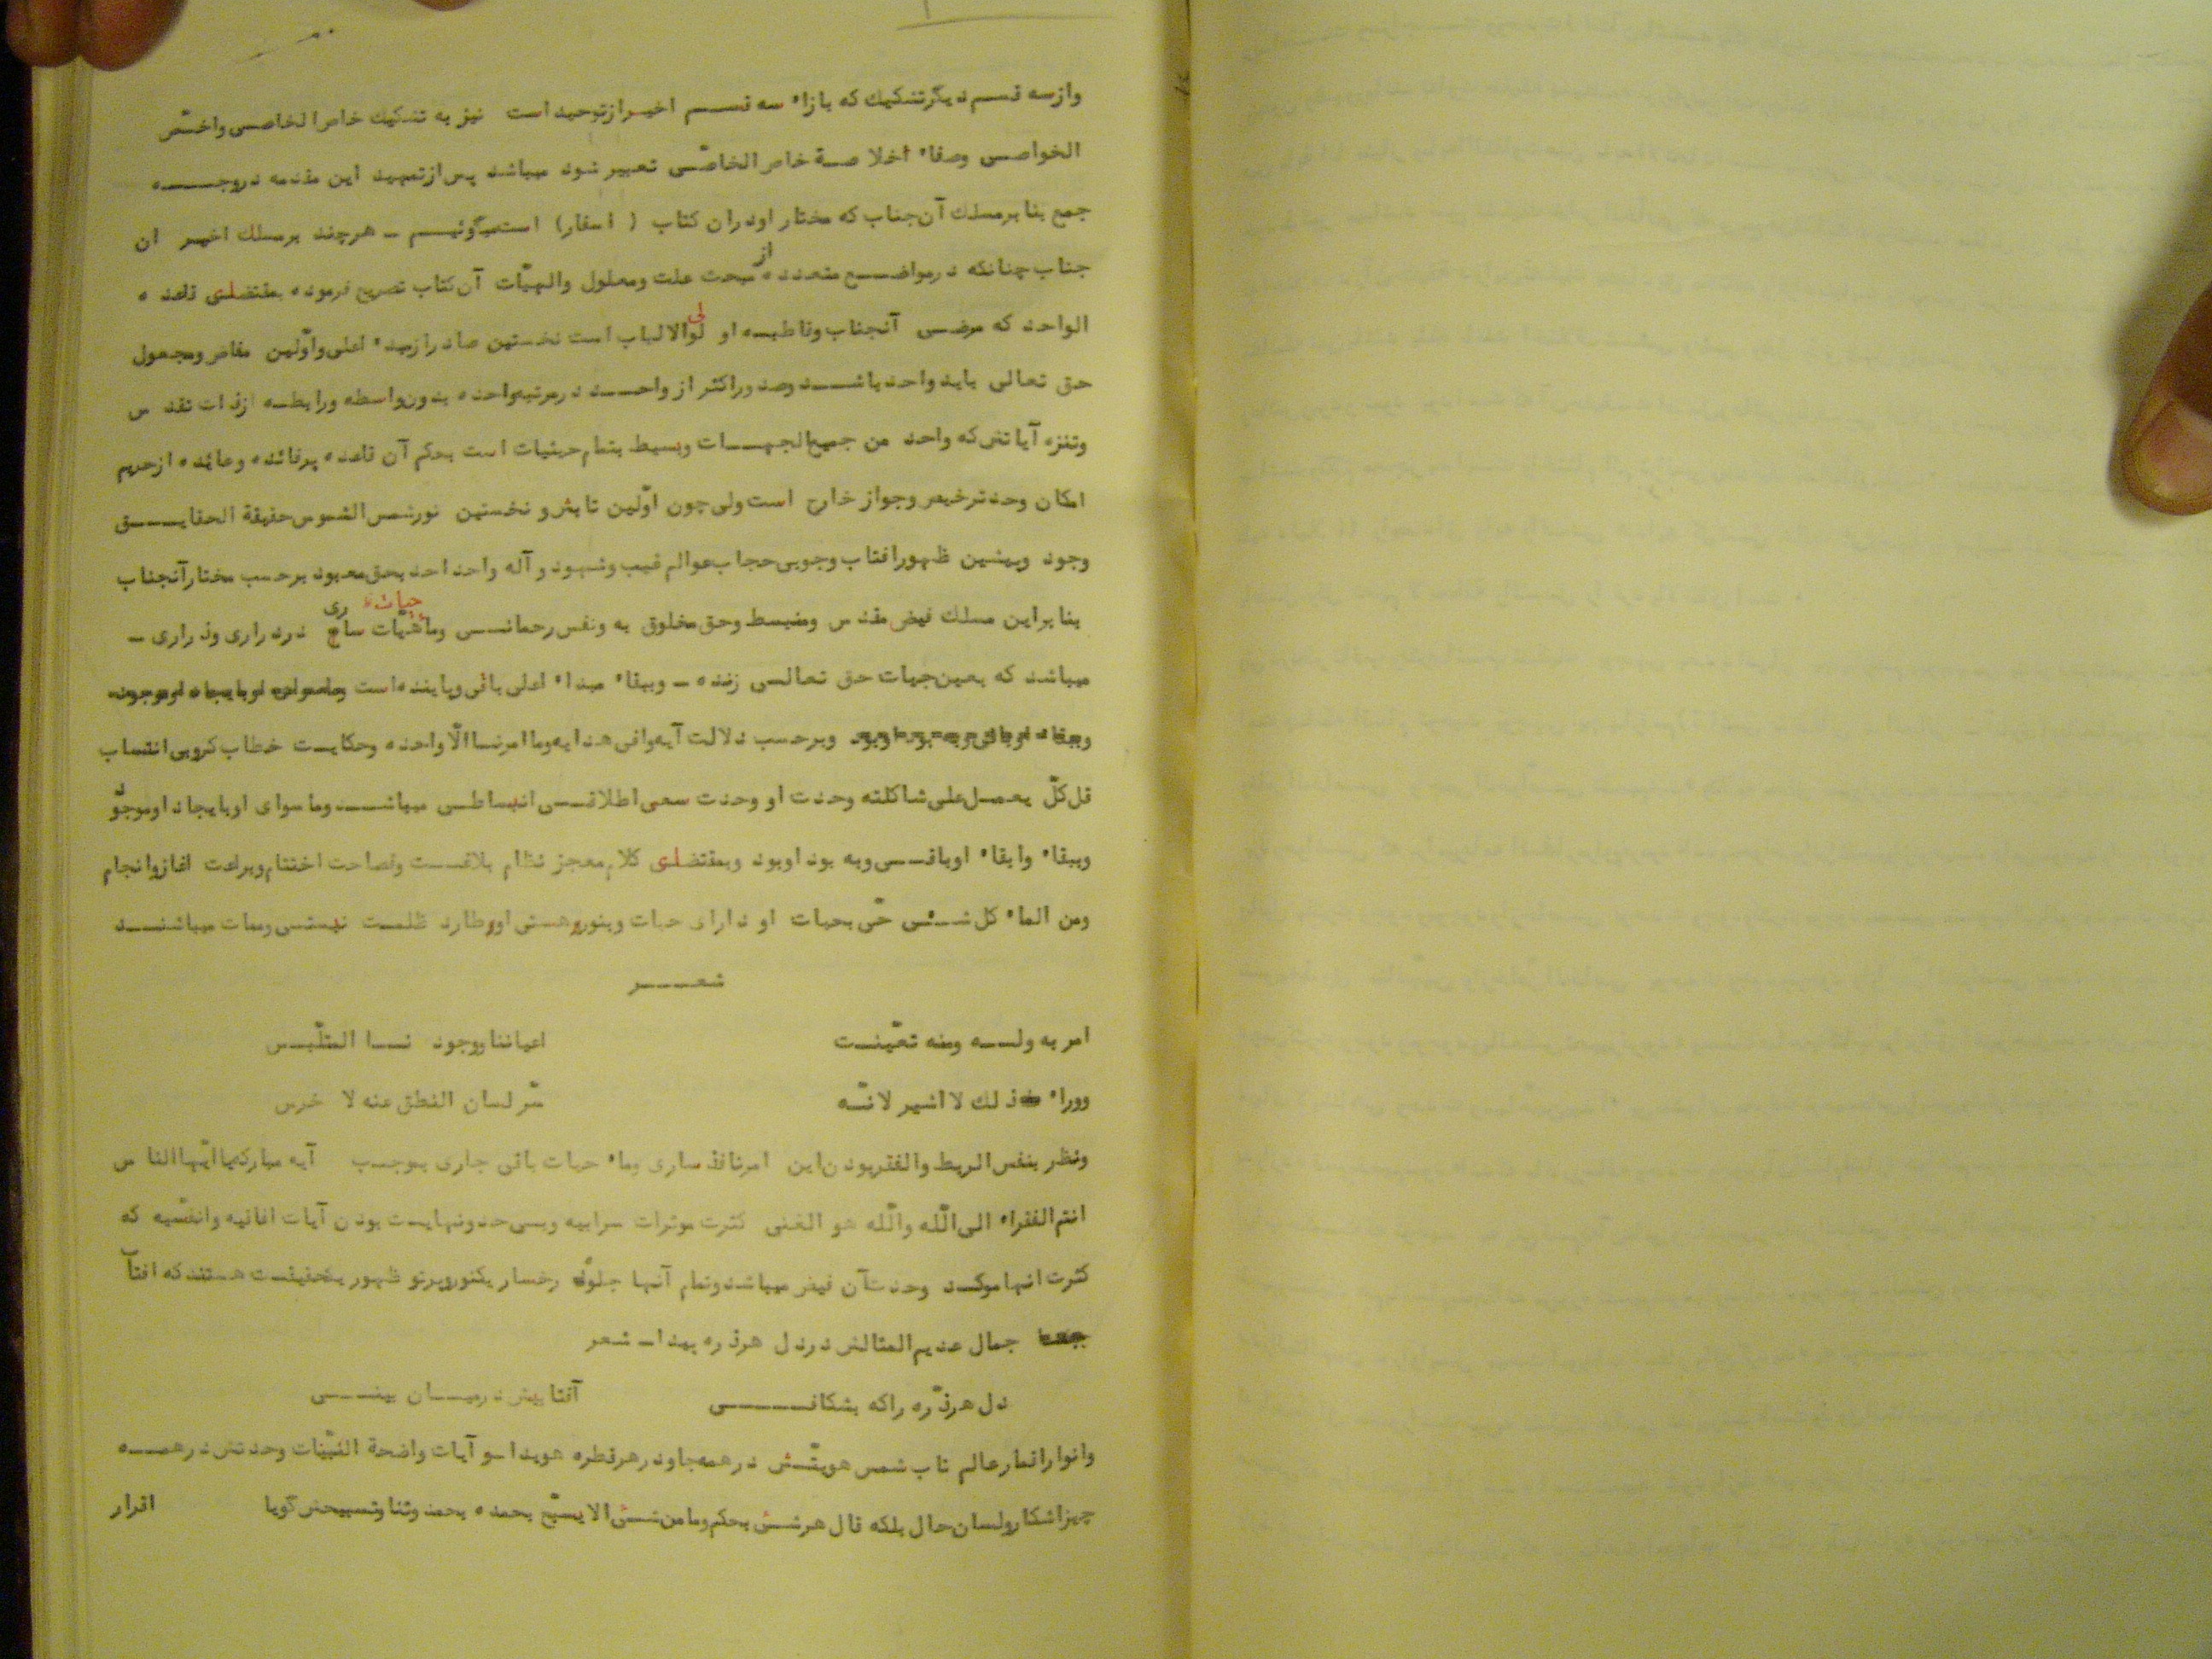 وازسه قسم دیگر تشکیک که بازاء سه قسم اخیر از توحید است نیز به تشکیک خاص الخاصی واخص
الخواصی وصفاء اخلاصة خاص الخاصّی تعبیر شود میباشد پس از تمهید این مقدمه دروجه
جمع بنا بر مسلک آن جناب که مختار اودران کتاب ( اسفار) است میگوئیم ـ هرچند بر مسلک اخیر ان
جناب چنانکه در مواضع متعدده از مبحث علت ومعلول والهیّات آن کتاب تصریح فرموده بمقتضای قاعده
الواحد که مرضی آنجناب وقاطبه اولی لوالالباب است نخستین صادر ازمبدء اعلی واوّلین مفاض ومجعول
حق تعالی باید واحد باشد وصدور اکثر از واحد در مرتبه واحده بدون واسطه ورابطه ازذات تقدس
وتنزه آیاتش که واحد من جمیع الجهات وبسیط بتمام حیثیات است بحکم آن قاعده پرفائده وعائده ازحریم
امکان وحد ترخیص وجواز خارج است ولی چون اوّلین تابش و نخستین نور شمس الشموس حقیقة الحقایق
وجود وپیشین ظهور افتاب وجوبی حجاب عوالم غیب وشهود و آله واحد احد بحق معبود برحسب مختار آنجناب
بنا براین مسلک فیض مقدس ومنبسط وحق مخلوق به ونفس رحمانی وماء حیات ساری درد راری وذراری ـ
میباشد که بعین حیات حق تعالی زنده ـ وببقاء مبداء اعلی باقی وپاینده است
وبرحسب دلالت آیه وافی هدایه وما امرنا الّا واحده وحکایت خطاب کروبی انتساب
قل کلّ یعمل علی شاکلته وحدت او وحدت سعی اطلاقی انبساطی میباشد وما سوای اوبایجاد اوموجود
وببقاء وابقاء اوباقی وبه بود اوبود وبمقتضای کلام معجز نظام بلاغت وفصاحت اختتام وبراعت اغاز وانجام
ومن الماء کل شئی حّی بحیات او دارای حیات وبنور هستی او طارد ظلمت نیستی وممات میباشند
شعر
امر به وله ومنه تعیّنت اعیاننا ووجود نا المتلّبس
ووراء ذلك لا اشیر لانّه سّر لسان النطق عنه لا خرس
ونظر بنفس الربط والفقر بودن این امر نافذ ساری وماء حیات باقی جاری بموجب آیه مبارکه یا ایّها الناس
انتم الفقراء الی اللّه واللّه هو الغنی کثرت موثرات سرابیه وبی حد ونهایت بودن آیات افاقیه وانفسّیه که
کثرت انها موکد وحدت آن فیض میباشد وتمام آنها جلوه رخسار یکنور وپرتو ظهور یکحقیقت هستند که افتاب
جمال عدیم المثالش دردل هرذره پیدا ـ شعر
دل هرذّره راکه بشکافی آفتابیش درمیان بینی
وانوار اقمار عالم تاب شمس هویّتش درهمه جا ودرهر قطره هویدا ـ و آیات واضحة البّینات وحدتش درهمه
چیز اشکار ولسان حال بلکه قال هرشئ بحکم وما من شئی الا یسبّح بحمده بحمد وثنا وتسبیحش گویا
اقرار